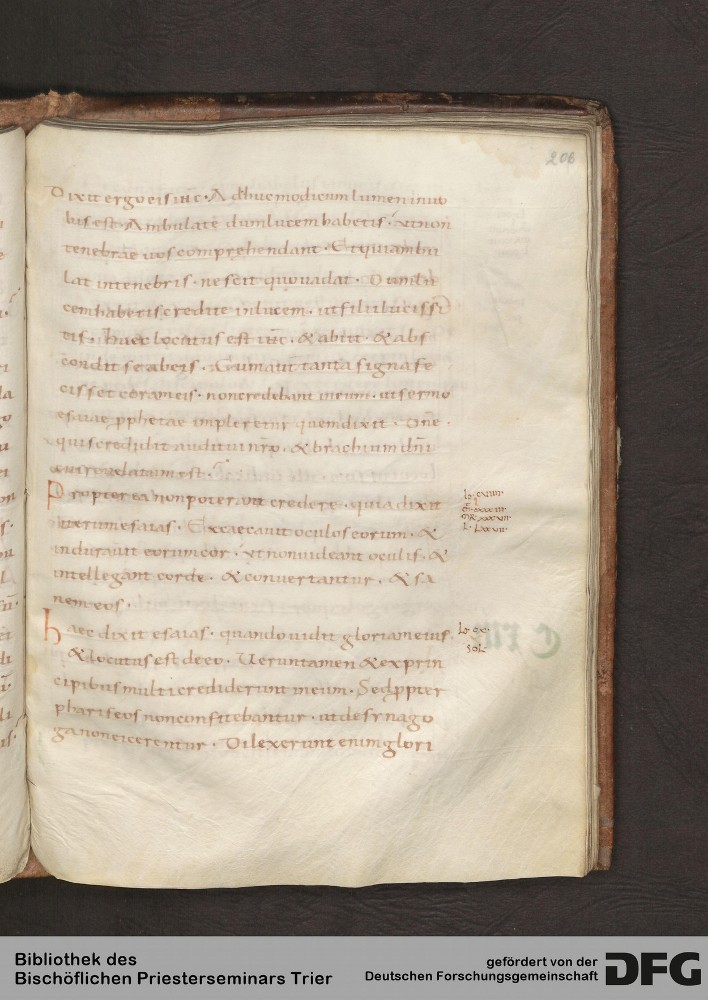 206
Dixit ergo eis ihc · Adhuc modicum lumen in uo
bis est · Ambulate dum lucem habetis · ut non
tenebrae uos comprehendant · Et qui ambu
lat in tenebris · nescit quo uadat · Dum lu
cem habetis, credite in lucem · ut filii lucis si
tis · haec locutus est ihc · & abiit · & abs
condit se ab eis · Cum aut tanta signa fe
cisset coram eis · non credebant in eum · ut sermo
esaiae pphetae impleretur quem dixit · Dne ·
quis credidit auditui nro · & brachium dni
cui reuelatum est ·
Propterea non poterant credere · quia dixit
iterum esaias · Excaecauit oculos eorum · &
indurauit eorum cor · ut non uideant oculis · &
intellegant corde · & conuertantur · & sa
nem eos ·
haec dixit esaias · quando uidit gloriam eius ·
& locutus est de eo · Ueruntamen & ex prin
cipibus multi crediderunt in eum · Sed ppter
phariseos non confitebantur · ut de synago
ga non eicerentur · Dilexerunt enim glori
Bibliothek des
Bischöflichen Priesterseminars Trier
gefördert von der
Deutschen Forschungsgemeinschaft
DFG